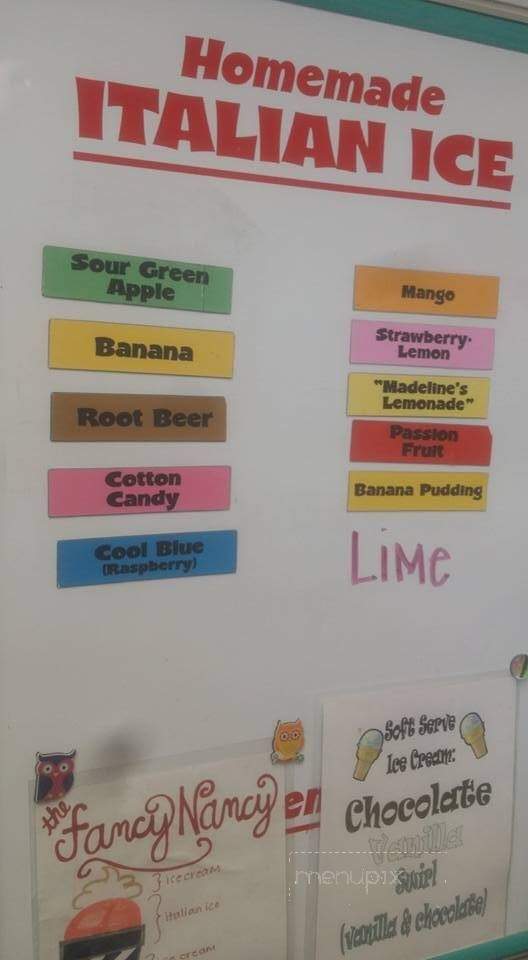 Homemade
ITALIAN ICE
Sour Green
Apple
Banana
Root Beer
Cotton
Candy
Cool Blue
(Raspberry)
Mango
Strawberry-
Lemon
"Madeline's
Lemonade"
Passion
Fruit
Banana Pudding
LiMe
the
Fancy Nancy
ice cream
italian ice
cream
en
Soft Serve
Ice Cream:
Chocolate
Vanilla
Swirl
(vanilla & chocolate)
menupix